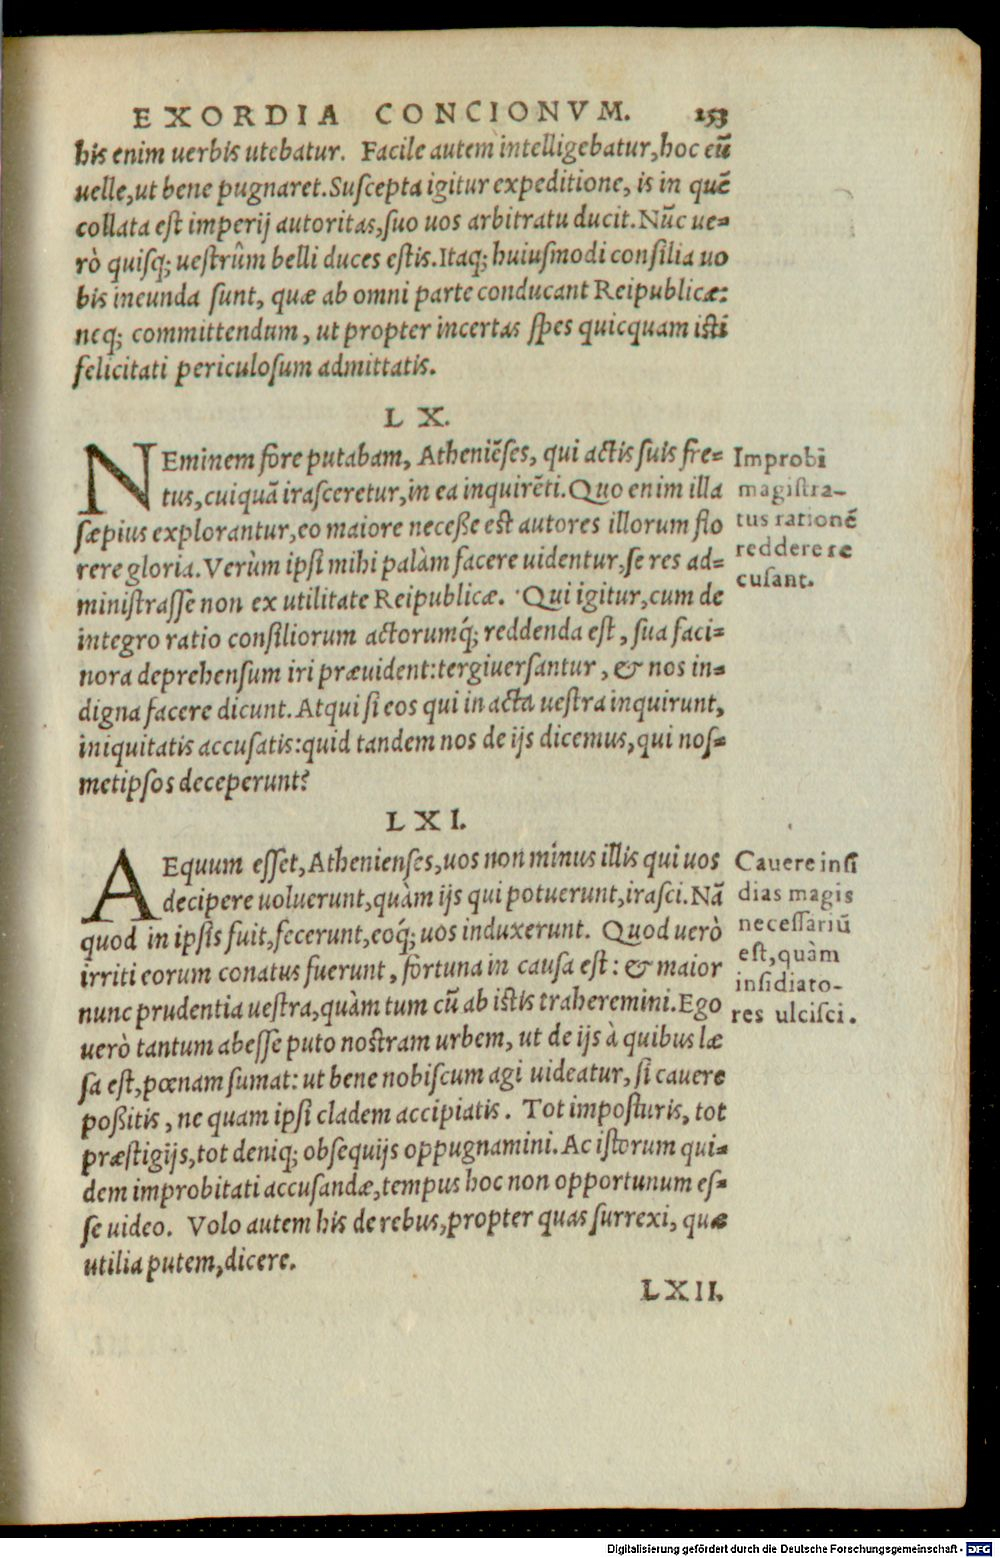 EXORDIA CONCIONVM. 153
his enim uerbis utebatur. Facile autem intelligebatur, hoc eũ
uelle, ut bene pugnaret. Suſcepta igitur expeditione, is in quẽ
collata eſt imperij autoritas, ſuo uos arbitratu ducit. Nũc ue-
rò quiſq; ueſtrûm belli duces eſtis. Itaq; huiuſmodi conſilia uo
bis ineunda ſunt, quæ ab omni parte conducant Reipublicæ:
neq; committendum, ut propter incertas ſpes quicquam iſti
felicitati periculoſum admittatis.
LX.
NEminem fore putabam, Atheniẽſes, qui actis ſuis fre-
tus, cuiquã iraſceretur, in ea inquirẽti. Quo enim illa
ſæpius explorantur, eo maiore neceſſe eſt autores illorum flo
rere gloria. Verùm ipſi mihi palàm facere uidentur, ſe res ad-
miniſtraſſe non ex utilitate Reipublicæ. Qui igitur, cum de
integro ratio conſiliorum actorumq́; reddenda eſt, ſua faci-
nora deprehenſum iri præuident: tergiuerſantur, & nos in-
digna facere dicunt. Atqui ſi eos qui in acta ueſtra inquirunt,
iniquitatis accuſatis: quid tandem nos de ijs dicemus, qui noſ-
metipſos deceperunt?
Improbi
magiſtra-
tus rationẽ
reddere re
cuſant.
LXI.
AEquum eſſet, Athenienſes, uos non minus illis qui uos
decipere uoluerunt, quàm ijs qui potuerunt, iraſci. Nã
quod in ipſis fuit, fecerunt, eoq́; uos induxerunt. Quod uerò
irriti eorum conatus fuerunt, fortuna in cauſa eſt: & maior
nunc prudentia ueſtra, quàm tum cũ ab iſtis traheremini. Ego
uerò tantum abeſſe puto noſtram urbem, ut de ijs à quibus læ
ſa eſt, pœnam ſumat: ut bene nobiſcum agi uideatur, ſi cauere
poſſitis, ne quam ipſi cladem accipiatis. Tot impoſturis, tot
præſtigijs, tot deniq; obſequijs oppugnamini. Ac iſtorum qui-
dem improbitati accuſandæ, tempus hoc non opportunum eſ-
ſe uideo. Volo autem his de rebus, propter quas ſurrexi, quæ
utilia putem, dicere.
Cauere inſi
dias magis
neceſſariũ
eſt, quàm
inſidiato-
res ulciſci.
LXII.
Digitalisierung gefördert durch die Deutsche Forschungsgemeinschaft - DFG